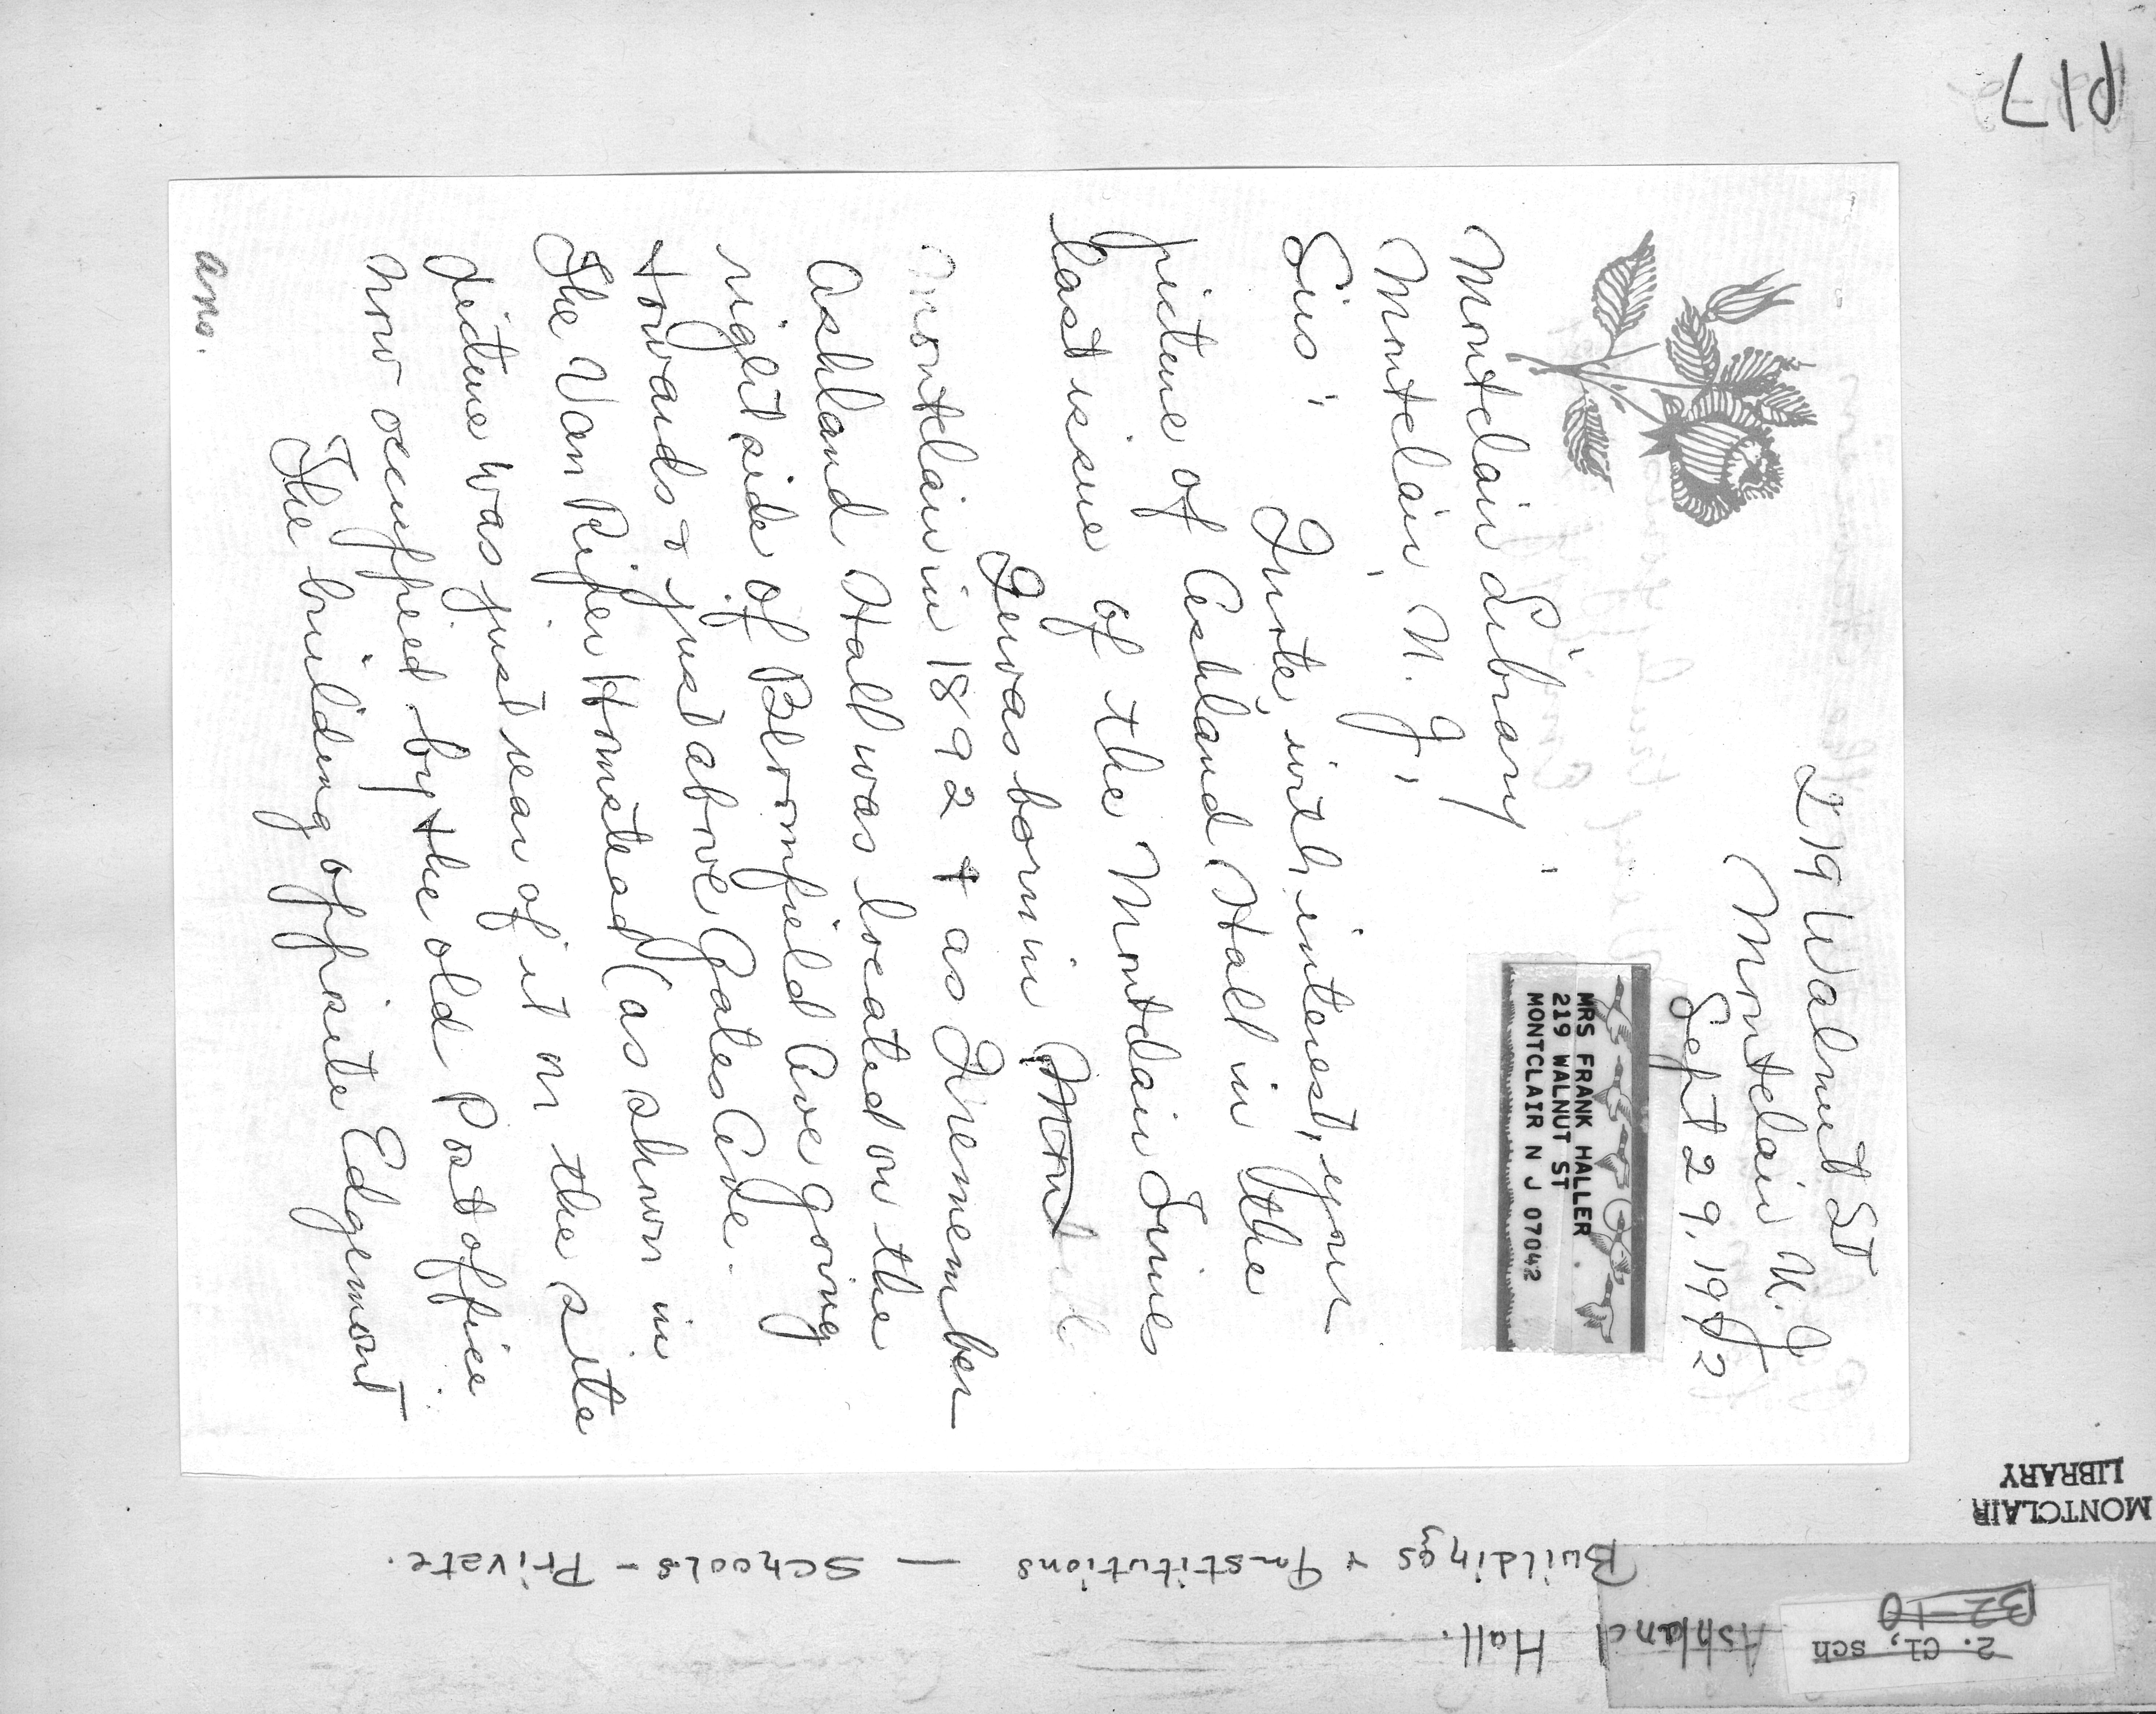 P17
219 Walnut St
Montclair N. J.
Sept 29, 1982
MRS FRANK HALLER
219 WALNUT ST
MONTCLAIR N J 07042
Montclair Library
Montclair, N. J.
Sirs:
I note, with interest, your
picture of Ashland Hall in the
last issue of the Montclair Times
I was born in
Montclair in 1892 + as I remember
Ashland Hall was located on the
right side of Bloomfield Ave going
towards + just above Gates Ave.
The Van Riper Homestead (as shown in
picture was just rear of it on the site
now occupied by the old Post office
The building opposite Edgemont
ans.
MONTCLAIR
LIBRARY
2. Cl, sch
B2-10
Ashland Hall.
Buildings + Institutions — Schools - Private.